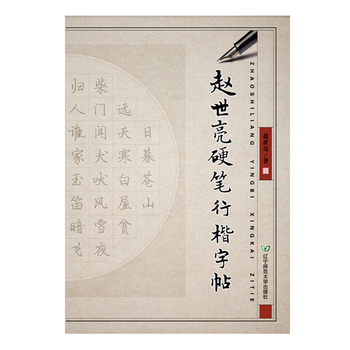 赵世亮硬笔行楷字帖
ZHAOSHILIANG YINGBI XINGKAI ZITIE
赵世亮 著
日暮苍山
远天寒白屋贫
柴门闻犬吠风雪夜
归人谁家玉笛暗飞
辽宁师范大学出版社